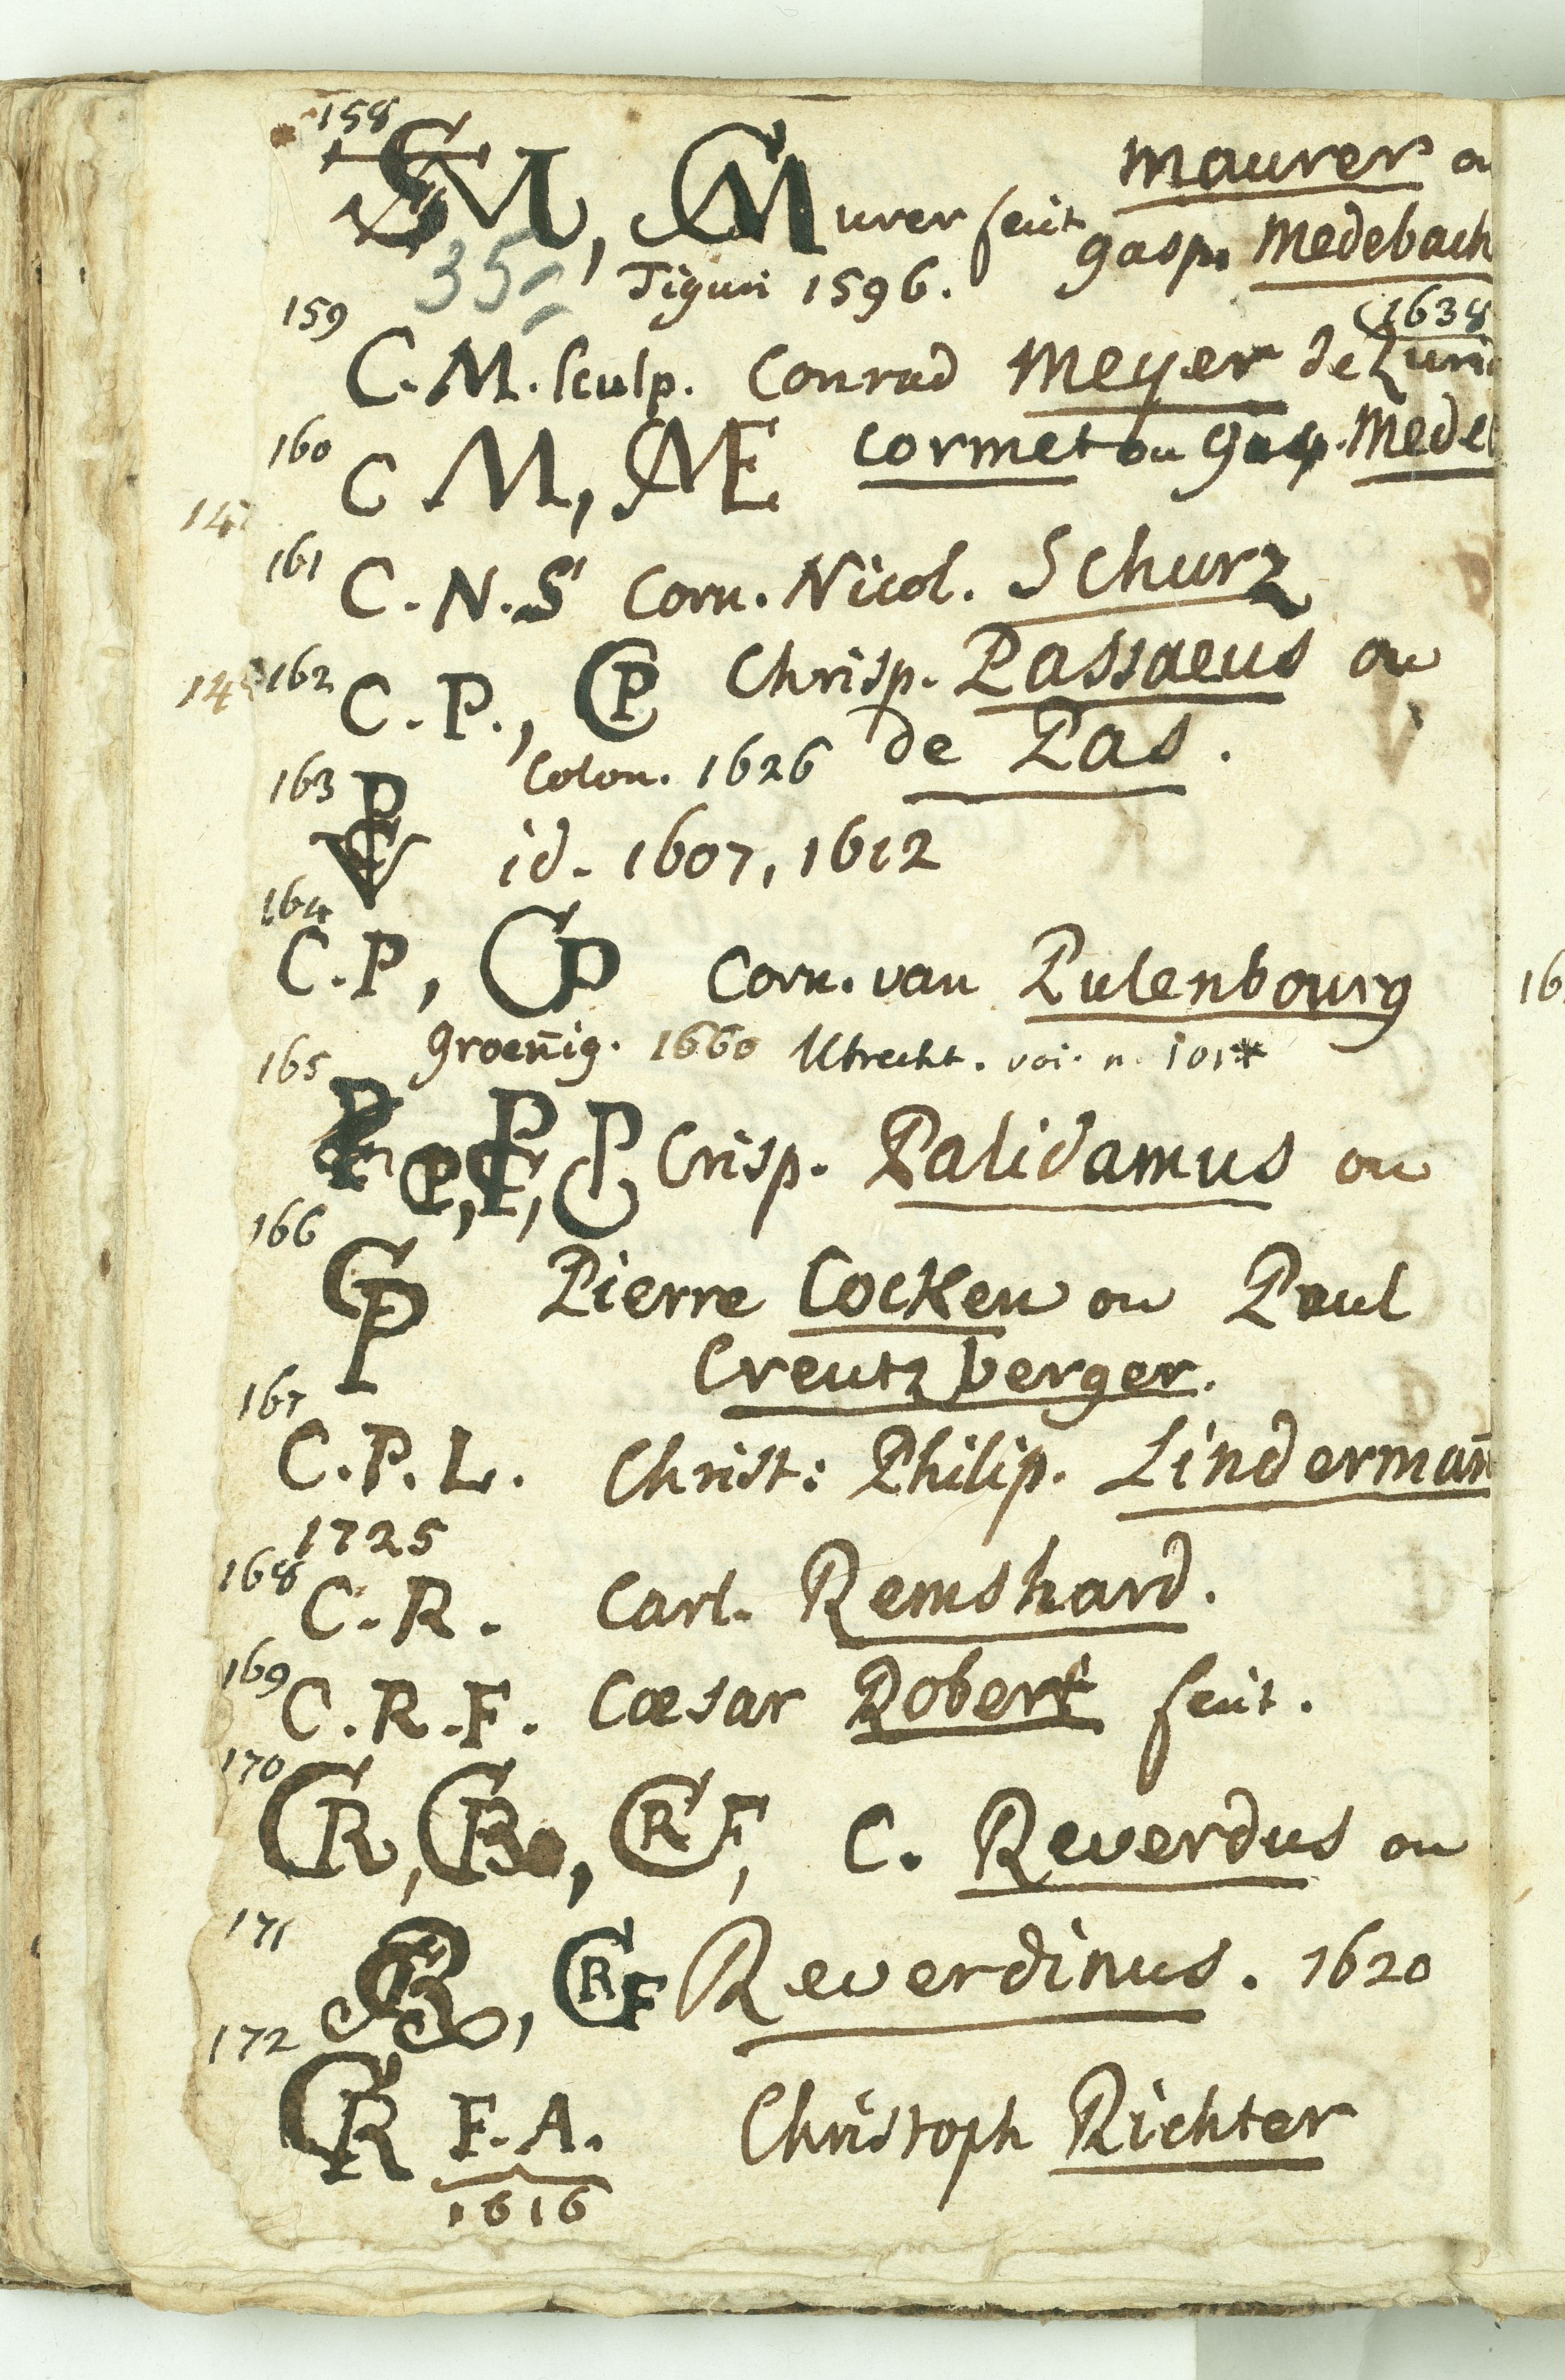 158
SM, CM urer fecit maurer o
35
Tiguri 1596. gasp. Medebach
159 (1638
C.M. sculp. Conrad Meyer de Zuri
160
C M, CME Cormet ou Gasp. Mede
161
C.N.S Corn. Nicol. Schurz
162
C.P., CP Chrisp. Passaeus ou
Colon. 1626 de Pas.
163
id. 1607, 1612
164
C.P, CP Corn. van Pulenbourg
groen̄ig. 1660 Utrecht. voi. n. 101*
165
CP, CP, CP Crisp. Palidamus ou
166
CP Pierre Cocken ou Paul
Creutzberger.
167
C.P.L. Christ: Philip. Linderman̄
1725
168
C.R. Carl. Remshard.
169
C.R.F. Cæsar Robert fecit.
170
CR, CR, CRF, C. Reverdus ou
171
CR, CRF Reverdinus. 1620
172
CR F.A. Christoph Richter
1616